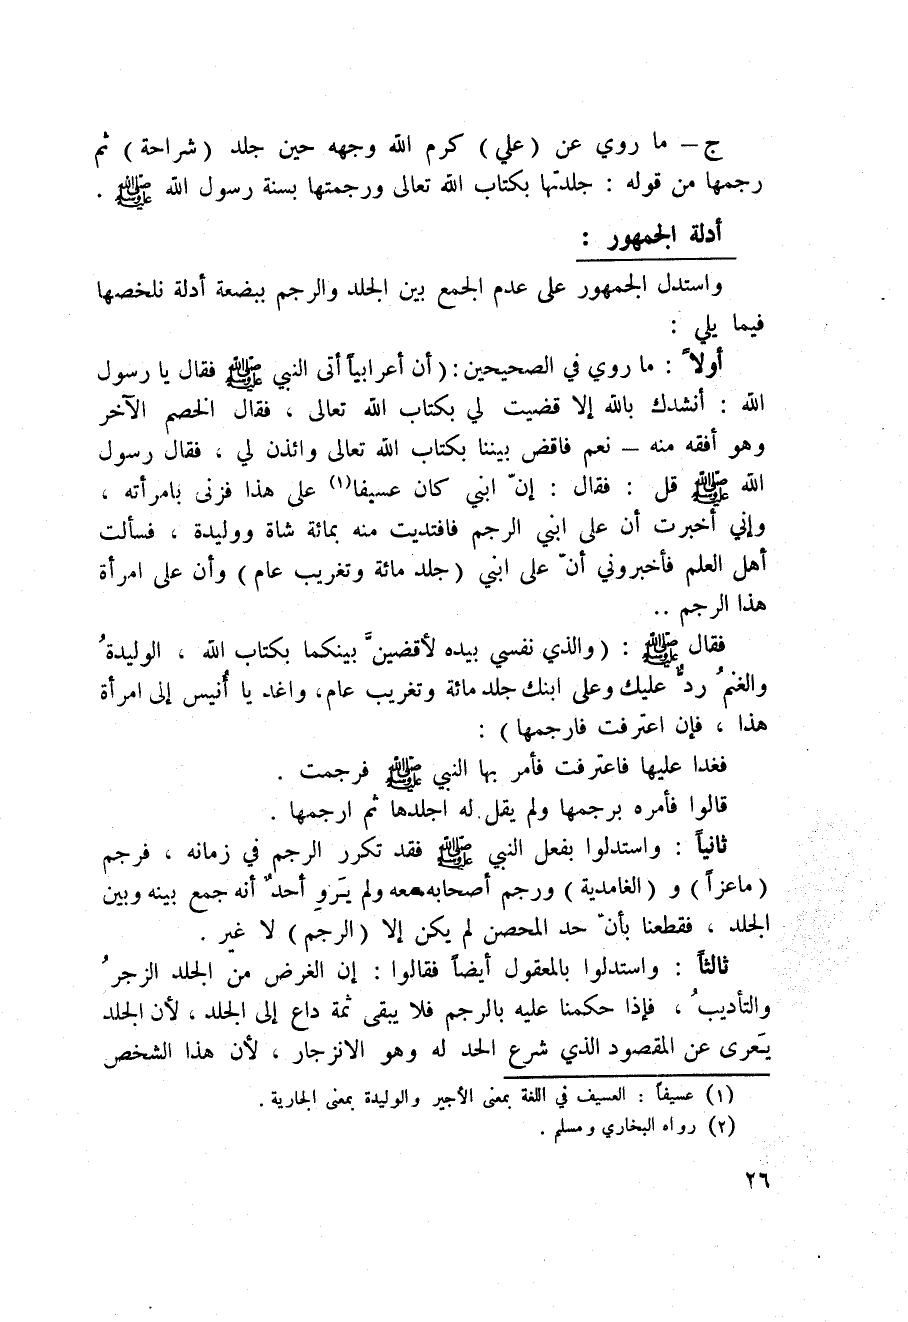 ج – ما روي عن (علي) كرم الله وجهه حين جلد (شراحة) ثم
رجمها من قوله : جلدتها بكتاب الله تعالى ورجمتها بسنة رسول الله ﷺ .
أدلة الجمهور :
واستدل الجمهور على عدم الجمع بين الجلد والرجم ببضعة أدلة نلخصها
فيما يلي :
أولاً : ما روي في الصحيحين : (أن أعرابياً أتى النبي ﷺ فقال يا رسول
الله : أنشدك بالله إلا قضيت لي بكتاب الله تعالى ، فقال الخصم الآخر
وهو أفقه منه – نعم فاقض بيننا بكتاب الله تعالى وائذن لي ، فقال رسول
الله ﷺ قل : فقال : إنّ ابني كان عسيفا(١) على هذا فزنى بامرأته ،
وإني أخبرت أن على ابني الرجم فافتديت منه بمائة شاة ووليدة ، فسألت
أهل العلم فأخبروني أنّ على ابني (جلد مائة وتغريب عام) وأن على امرأة
هذا الرجم ..
فقال ﷺ : (والذي نفسي بيده لأقضينَّ بينكما بكتاب الله ، الوليدةُ
والغنمُ ردٌّ عليك وعلى ابنك جلد مائة وتغريب عام، واغد يا أُنيس إلى امرأة
هذا ، فإن اعترفت فارجمها) :
فغدا عليها فاعترفت فأمر بها النبي ﷺ فرجمت .
قالوا فأمره برجمها ولم يقل له اجلدها ثم ارجمها .
ثانياً : واستدلوا بفعل النبي ﷺ فقد تكرر الرجم في زمانه ، فرجم
(ماعزاً) و (الغامدية) ورجم أصحابه معه ولم يَروِ أحدٌ أنه جمع بينه وبين
الجلد ، فقطعنا بأنّ حد المحصن لم يكن إلا (الرجم) لا غير .
ثالثاً : واستدلوا بالمعقول أيضاً فقالوا : إن الغرض من الجلد الزجرُ
والتأديبُ ، فإذا حكمنا عليه بالرجم فلا يبقى ثمة داع إلى الجلد ، لأن الجلد
يَعرى عن المقصود الذي شرع الحد له وهو الانزجار ، لأن هذا الشخص
(١) عسيفاً : العسيف في اللغة بمعنى الأجير والوليدة بمعنى الجارية .
(٢) رواه البخاري ومسلم .
٢٦